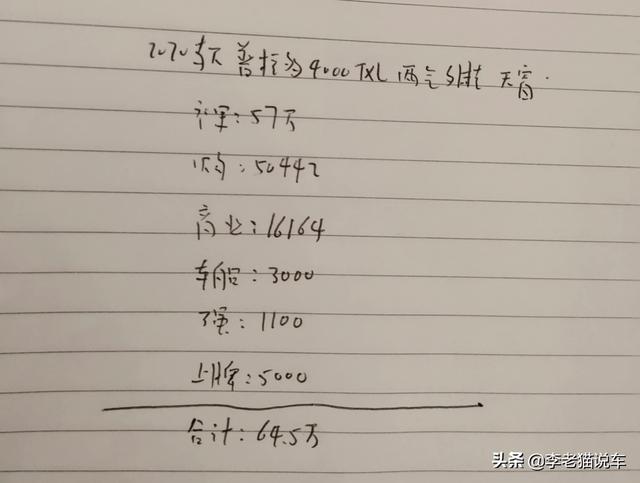 2020款 普拉多4000TXL 两气 外挂 天窗.
裸车:57万
购:50442
商业:16164
车船:3000
强:1100
上牌:5000
合计:64.5万
头条 @李老猫说车